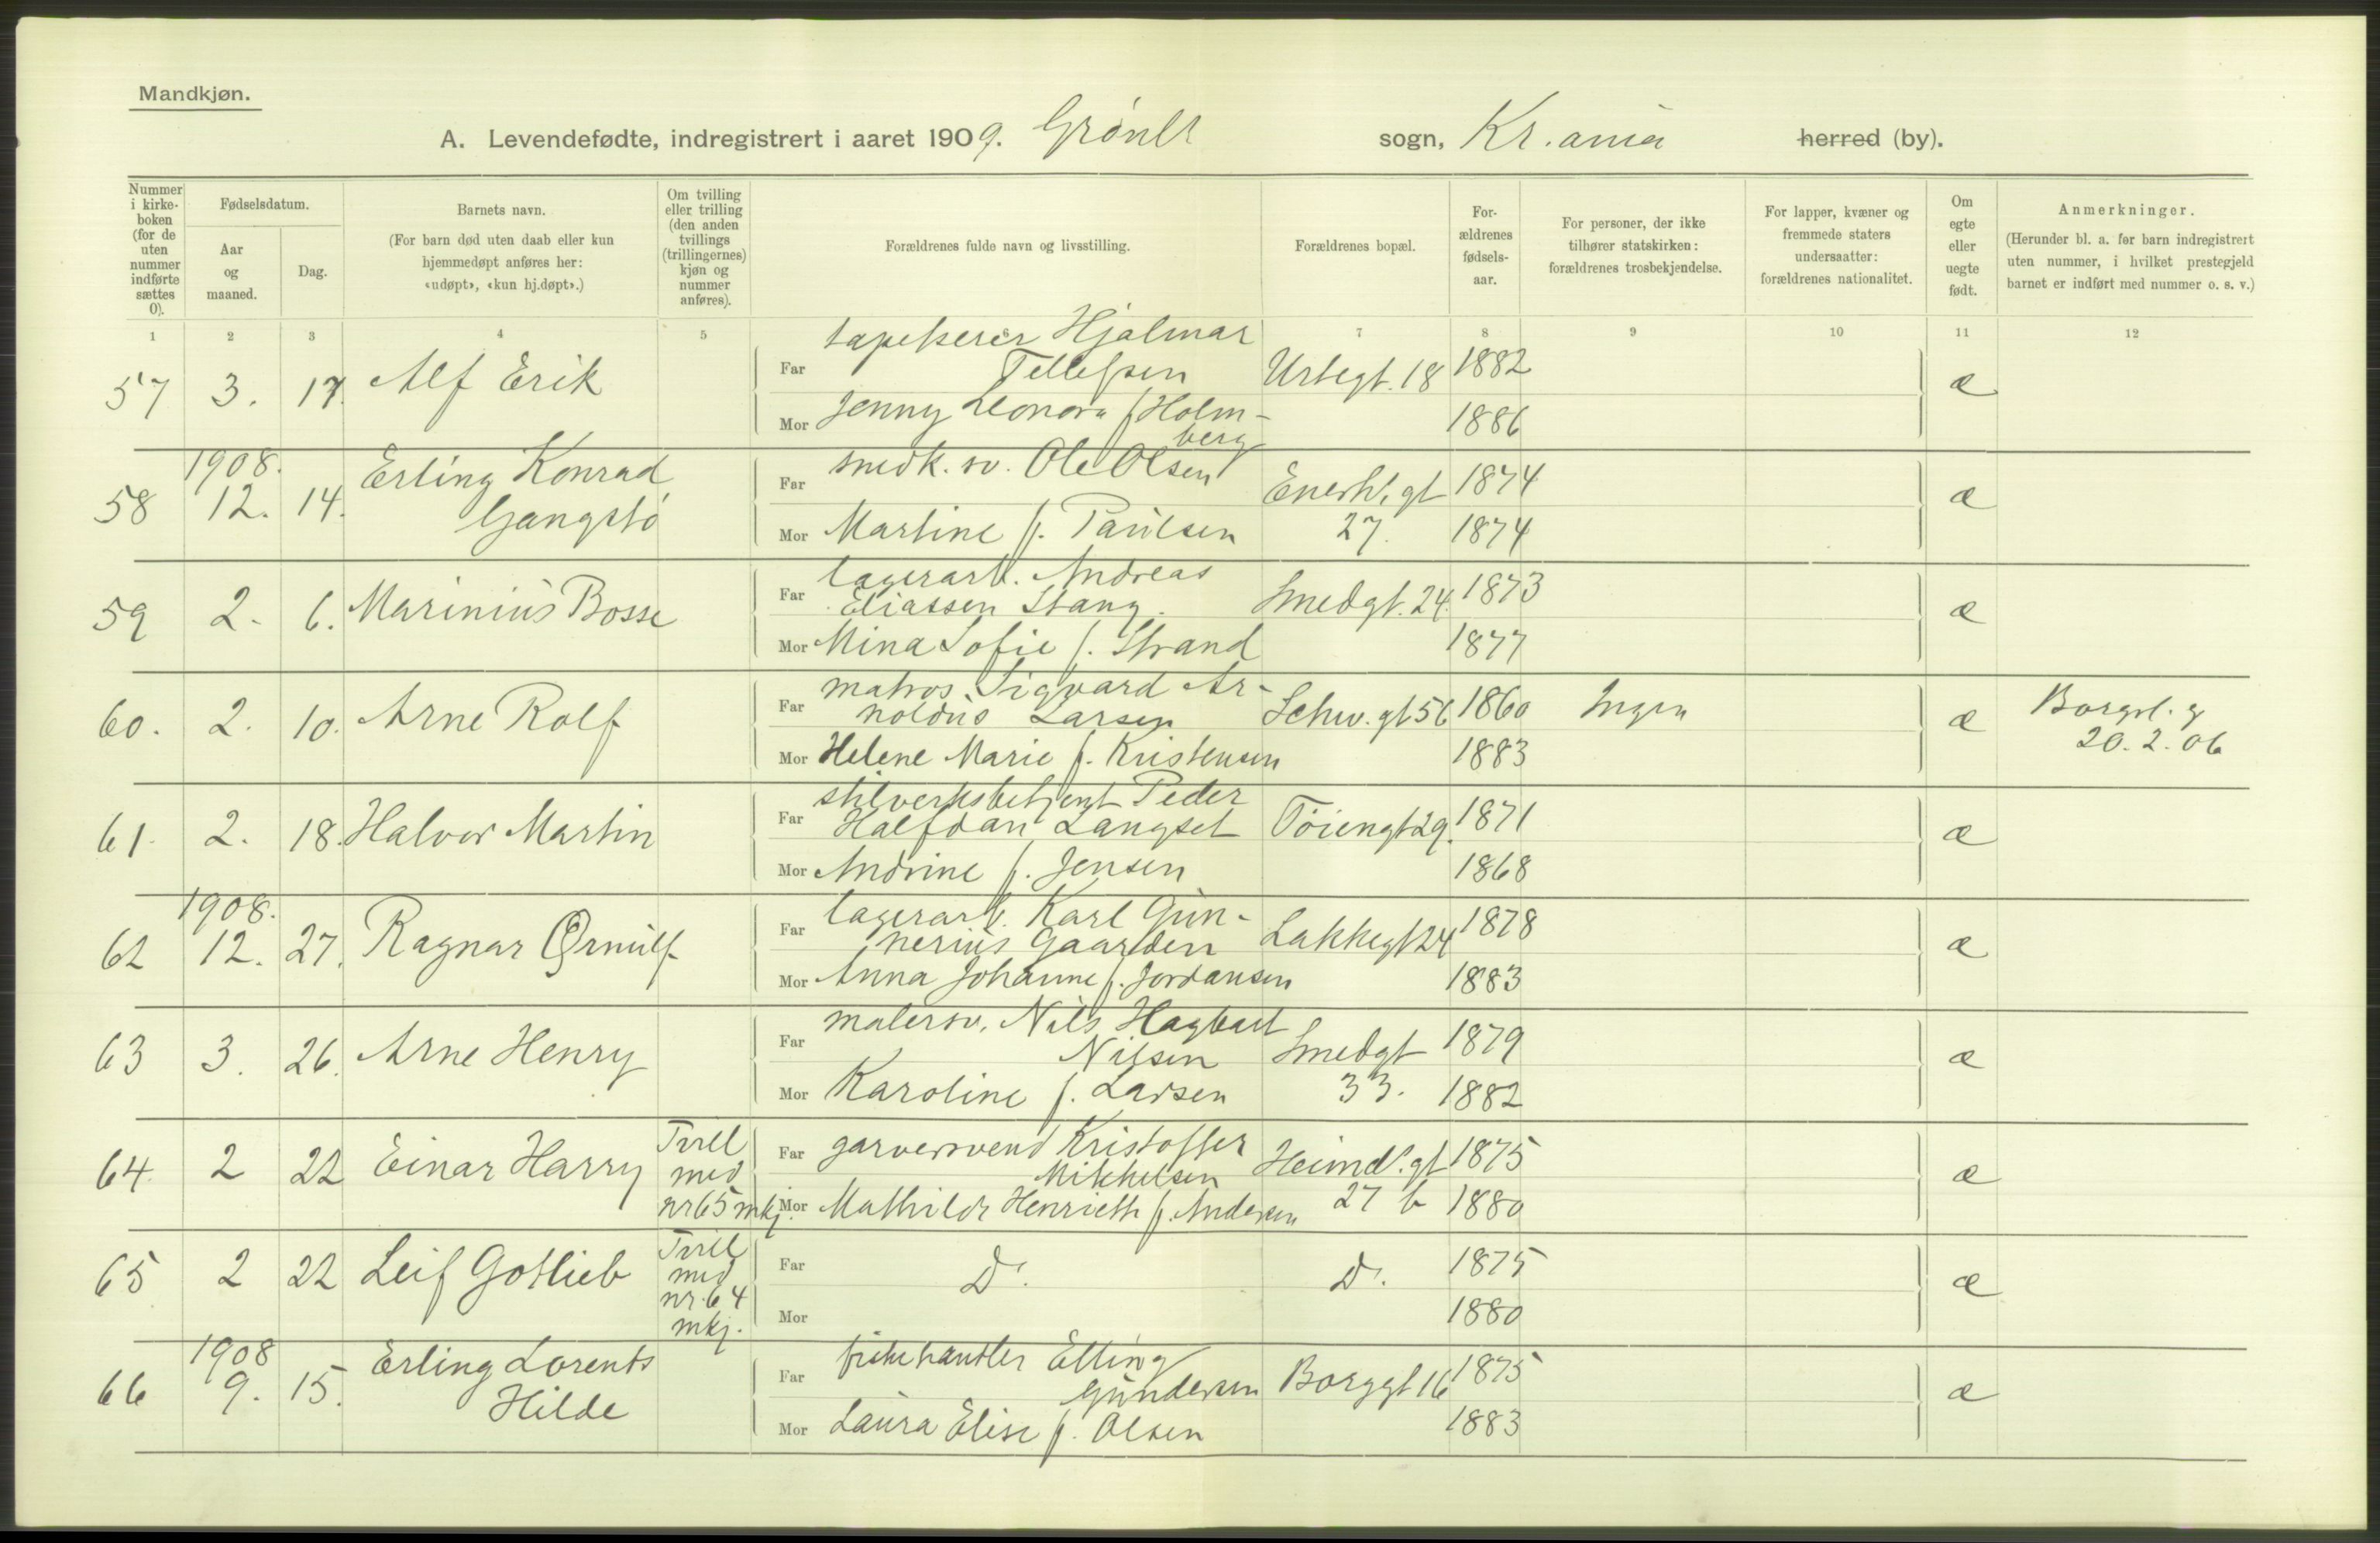 Mandkjøn.
A. Levendefødte, indregistrert i aaret 1909. Grønl. sogn, Kr.ania herred (by).
Nummer i kirke-boken (for de uten nummer indførte sættes 0).
Fødselsdatum.
Aar og maaned.
Dag.
Barnets navn.
(For barn død uten daab eller kun hjemmedøpt anføres her: «udøpt», «kun hj.døpt».)
Om tvilling eller trilling (den anden tvillings (trillingernes) kjøn og nummer anføres).
Forældrenes fulde navn og livsstilling.
Forældrenes bopæl.
For-ældrenes fødsels-aar.
For personer, der ikke tilhører statskirken: forældrenes trosbekjendelse.
For lapper, kvæner og fremmede staters undersaatter: forældrenes nationalitet.
Om egte eller uegte født.
Anmerkninger.
(Herunder bl. a. for barn indregistrert uten nummer, i hvilket prestegjeld barnet er indført med nummer o. s. v.)
1 2 3 4 5 6 7 8 9 10 11 12
57 3. 17. Alf Erik Far tapetserer Hjalmar Tellefsen Urtegt. 18 1882 æ
Mor Jenny Leonora f. Holm-berg 1886
58 1908. 12. 14. Erling Konrad Gangstø Far snedk. sv. Ole Olsen Enerh. gt 27. 1874 æ
Mor Martine f. Paulsen 1874
59 2. 6. Marinius Bosse Far lagerarb. Andreas Eliassen Stang. Smedgt. 24. 1873 æ
Mor Mina Sofie f. Strand 1877
60. 2. 10. Arne Rolf Far matros Sigvard Ar-noldus Larsen Schw. gt 56 1860 Ingen æ Borgerl. g 20.2.06
Mor Helene Marie f. Kristensen 1883
61. 2. 18. Halvor Martin Far Peder Halfdan Langset Tøiengt 29. 1871 æ
Mor Andrine f. Jensen 1868
62 1908. 12. 27. Ragnar Ørnulf Far lagerarb. Karl Gun-nerius Gaarden Lakkegt 24 1878 æ
Mor Anna Johanne f. Jordansen 1883
63 3. 26. Arne Henry Far malersv. Nils Hagbart Nilsen Smedgt 33. 1879 æ
Mor Karoline f. Larsen 1882
64. 2 22 Einar Harry Tvill med nr 65 mkj. Far garversvend Kristoffer Mikkelsen Heimd. gt 27 b 1875 æ
Mor Mathilde Henriette f. Andersen 1880
65 2 22 Leif Gotlieb Tvill med nr. 64 mkj. Far D°. D°. 1875 æ
Mor 1880
66 1908 9. 15. Erling Lorents Hilde Far fiskehandler Elling Gundersen Borggt 16 1875 æ
Mor Laura Elise f. Olsen 1883